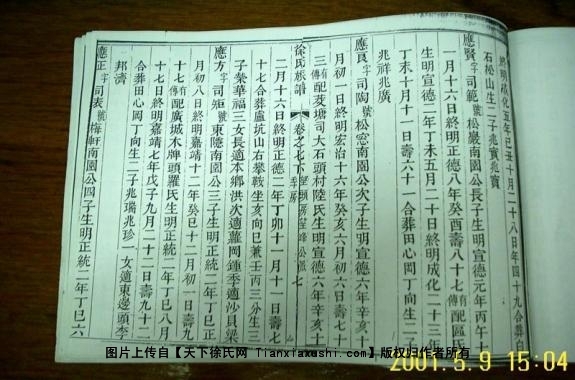 終明成化五年己丑十月二十八日年四十九合葬白
石松山生二子兆寶兆寶
應賢字司範號松巖南園公長子生明宣德元年丙午十
一月十六日終明正德八年癸酉壽八十七有傳配區
生明宣德二年丁未五月二十日終明成化二十三年
丁未十月十一日壽六十一合葬田心岡丁向生二子
兆祥兆廣
應良字司陶號松愙南園公次子生明宣德六年辛亥十
月初一日終明宏治十六年癸亥六月初六日壽七十
三有傳配茭塘司大石頭村陸氏生明宣德六年辛亥十
徐氏族譜 卷之七下 七
二月十六日終明正德二年丁卯十一月十一日壽七
十七合葬盧坑山右攀鞍坐亥向巳兼壬丙三分生三
子榮華福三女長適本鄉洪次適蘿岡鍾季適沙貝梁
應方字司矩號東隱南園公三子生明正統二年丁巳正
月初八日終明嘉靖十二年癸巳十二月初一日壽九
十七有傳配廣城木牌頭羅氏生明正統二年丁巳八月
十七日終明嘉靖七年戊子九月二十二日壽九十二
合葬田心岡丁向生二子兆瑞兆珍一女適東邊頭李
邦濟
應正字司表號梅軒南園公四子生明正統二年丁巳六
图片上传自【天下徐氏网 tianxiaxushi.com】版权归作者所有
2001.5.9 15:04